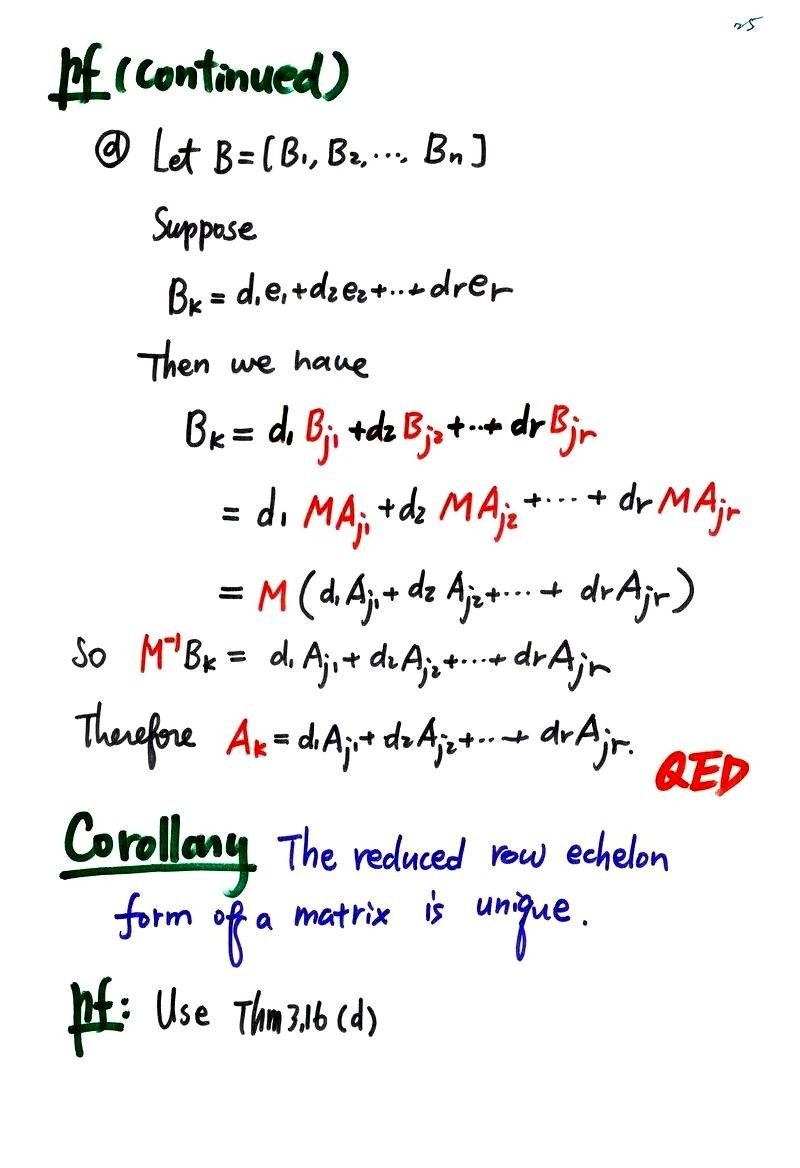 25
pf (continued)
ⓓ Let B = [B₁, B₂, ..., Bn]
Suppose
Bₖ = d₁e₁ + d₂e₂ + ... + drer
Then we have
Bₖ = d₁ Bj₁ + d₂ Bj₂ + ... + dr Bjr
= d₁ MAj₁ + d₂ MAj₂ + ... + dr MAjr
= M (d₁Aj₁ + d₂ Aj₂ + ... + drAjr)
So M⁻¹Bₖ = d₁ Aj₁ + d₂Aj₂ + ... + drAjr
Therefore Aₖ = d₁Aj₁ + d₂Aj₂ + ... + drAjr.
QED
Corollary The reduced row echelon
form of a matrix is unique.
pf: Use Thm 3.16 (d)